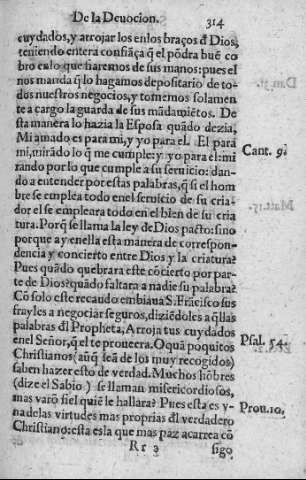 De la Deuocion. 314
cuydados, y arrojar los enlos braços đ Dios,
teniendo entera confiāça q̄ el pōdra buē co
bro enlo que fiaremos de sus manos: pues el
nos manda q̄ lo hagamos depositario de to-
dos nuestros negocios, y tomemos solamen
te a cargo la guarda de sus mādamiētos. De
sta manera lo hazia la Esposa quādo dezia,
Mi amado es para mi, y yo para el. El para
mi, mirādo lo q̄ me cumple: y yo para el: mi
rando por lo que cumple a su seruicio: dan-
do a entender por estas palabras, q̄ si el hom
bre se emplea todo en el seruicio de su cria-
dor el se empleara todo en el bien de su cria
tura. Porq̄ se llama la ley de Dios pacto: sino
porque ay enella esta manera de correspon-
dencia y concierto entre Dios y la criatura?
Pues quādo quebrara este cōcierto por par-
te de Dios? quādo faltara a nadie su palabra?
Cō solo este recaudo embiaua S. Frācisco sus
frayles a negociar seguros, diziēdoles a q̄llas
palabras đl Propheta, Arroja tus cuydados
en el Señor, q̄ el te proueera. O quā poquitos
Christianos (aūq̄ seā de los muy recogidos)
saben hazer esto de verdad. Muchos hōbres
(dize el Sabio) se llaman misericordiosos,
mas varō fiel quiē le hallara? Pues esta es v-
na delas virtudes mas proprias đl verdadero
Christiano: esta es la que mas paz acarrea cō
Rr 3 sigo
Cant. 9.
Psal. 54.
Prou. 10.